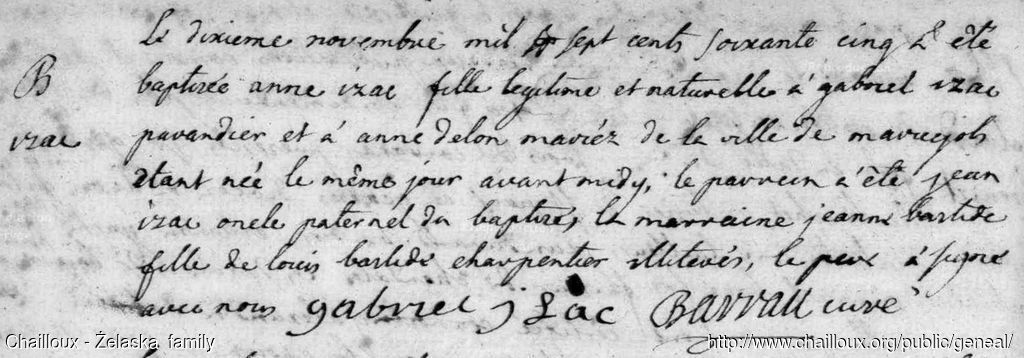 Le dixieme novembre mil sept cents soixante cinq à été
B
baptisée anne izac fille legitime et naturelle à gabriel izac
izac
pavandier et à anne delon mariéz de la ville de maruejols
étant née le même jour avant midy, le parrein à été jean
izac oncle paternel du baptisé, la marraine jeanne bastide
fille de louis bastide charpentier illiterés, le pere à signé
avec nous gabriel jzac Barrau curé
Chailloux - Żelaska family
http://www.chailloux.org/public/geneal/